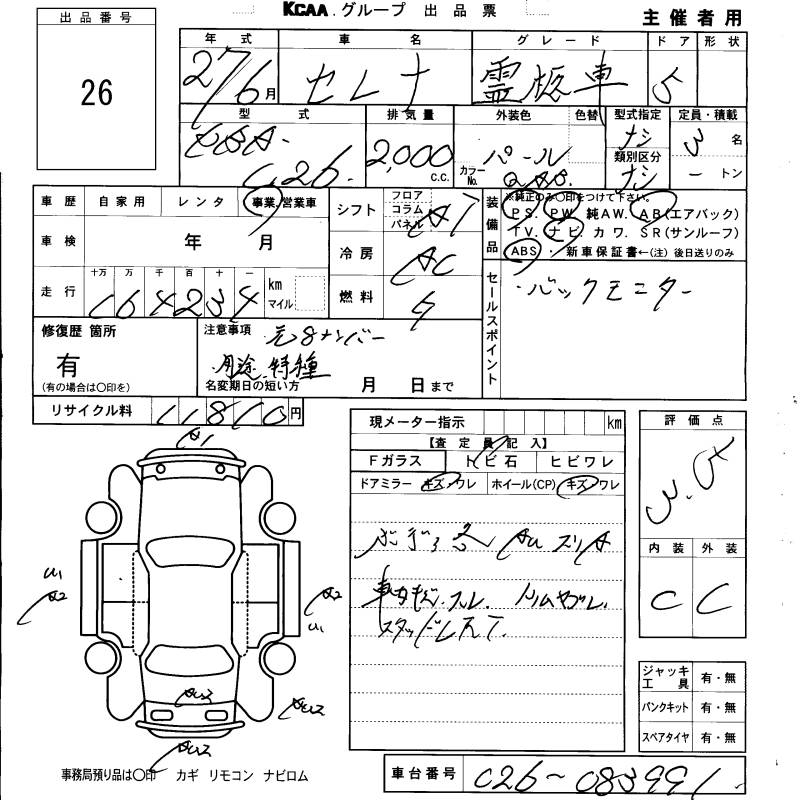 KCAA.グループ 出品票
主催者用
出品番号
26
年式 車名 グレード ドア 形状
27/6月 セレナ 霊柩車 5
型式 排気量 外装色 色替 型式指定 定員・積載
C26 2,000 C.C. パール カラーNo. QAB ナシ 3名
類別区分
ナシ ートン
車歴 自家用 レンタ 事業.営業車
車検 年 月
走行 十万 万 千 百 十 一 km マイル
164234
シフト フロア コラム パネル AT
冷房 AC
燃料 ガ
装備品
※純正のみ○印をつけて下さい。
PS. PW. 純AW. AB(エアバック)
TV. ナビ. カワ. SR(サンルーフ)
ABS・新車保証書←(注)後日送りのみ
セールスポイント
・バックモニター
修復歴 箇所
有
(有の場合は○印を)
注意事項 元8ナンバー
用途 特種
名変期日の短い方 月 日まで
リサイクル料 11810円
現メーター指示 km
【査定員記入】
Fガラス トビ石 ヒビワレ
ドアミラー キズ.ワレ ホイール(CP) キズ.ワレ
スリA
スタッドレスT.
評価点
3.5
内装 外装
C C
A1
U1
A2
A2
U1
事務局預り品は○印 カギ リモコン ナビロム
ジャッキ工具 有・無
パンクキット 有・無
スペアタイヤ 有・無
車台番号 C26~083991